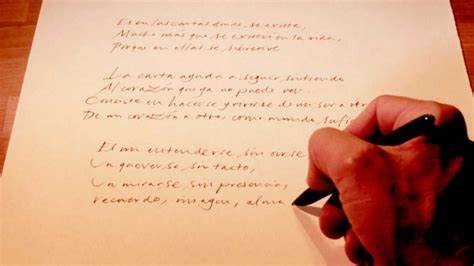 Es en las cartas donde, se existe,
Mucho más que se existe en la vida,
Porque en ellas, se sobrevive
La carta ayuda a seguir, sintiendo
Al corazón que ya no puede ver.
Consiste en hacerse de un ser a otro
De un corazón a otro, como mundo,
Es un entenderse, sin oírse,
Un quererse, sin tacto,
Un mirarse, sin presencia,
recuerdo, imagen, alma